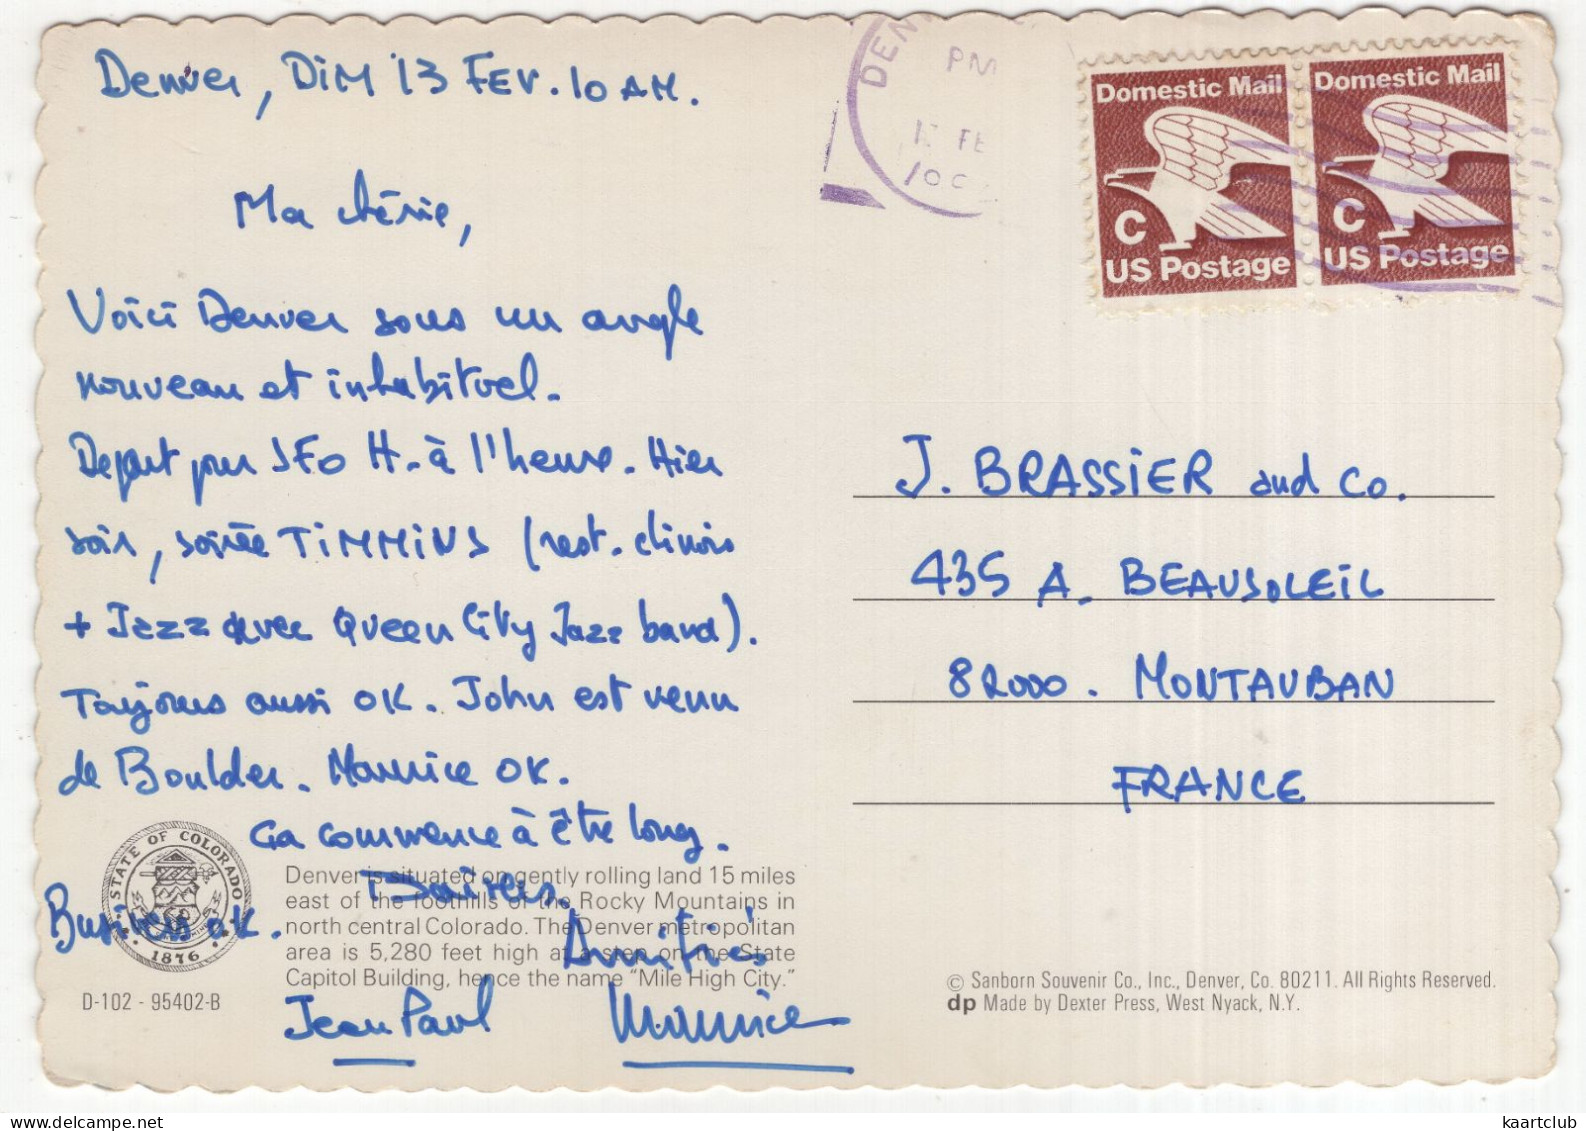 Denver, DiM 13 FEV. 10 AM.
Ma chérie,
Voici Denver sous un angle
nouveau et inhabituel.
Depart pour SFO H. à l'heure. Hier
soir, soirée TiMMiNS (rest. chinois
+ Jazz avec Queen City Jazz band).
Toujours aussi OK. John est venu
de Boulder. Maurice OK.
Ca commence à être long.
Baisers.
Business OK.
Amitiés
Jean Paul
Maurice
STATE OF COLORADO
1876
Denver is situated on gently rolling land 15 miles
east of the foothills of the Rocky Mountains in
north central Colorado. The Denver metropolitan
area is 5,280 feet high at a step on the State
Capitol Building, hence the name "Mile High City."
D-102 - 95402-B
DEN
PM
FE
Domestic Mail
C
US Postage
Domestic Mail
C
US Postage
J. BRASSiER and Co.
435 A. BEAUSOLEiL
82000. MONTAUBAN
FRANCE
© Sanborn Souvenir Co., Inc., Denver, Co. 80211. All Rights Reserved.
dp Made by Dexter Press, West Nyack, N.Y.
kaartclub
www.delcampe.net